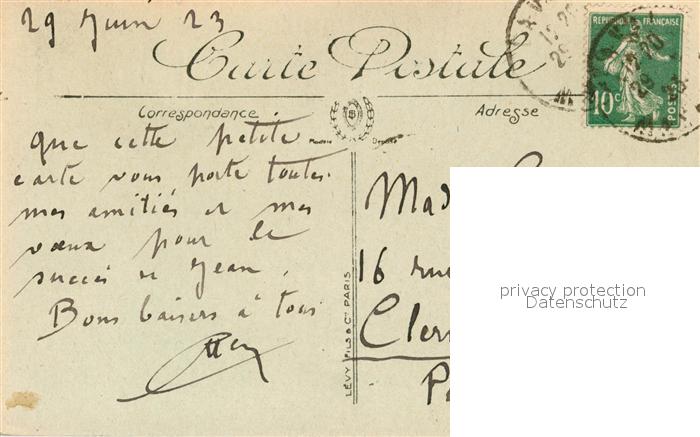 29 Juin 23
Carte Postale
REPUBLIQUE FRANÇAISE
10c
POSTES
Correspondance
Adresse
que cette petite
carte vous porte toutes
mes amitiés et mes
vœux pour le
succès de Jean.
Bons baisers à tous
LÉVY FILS & Cie PARIS
Mad
16 rue
Cler
P
privacy protection
Datenschutz